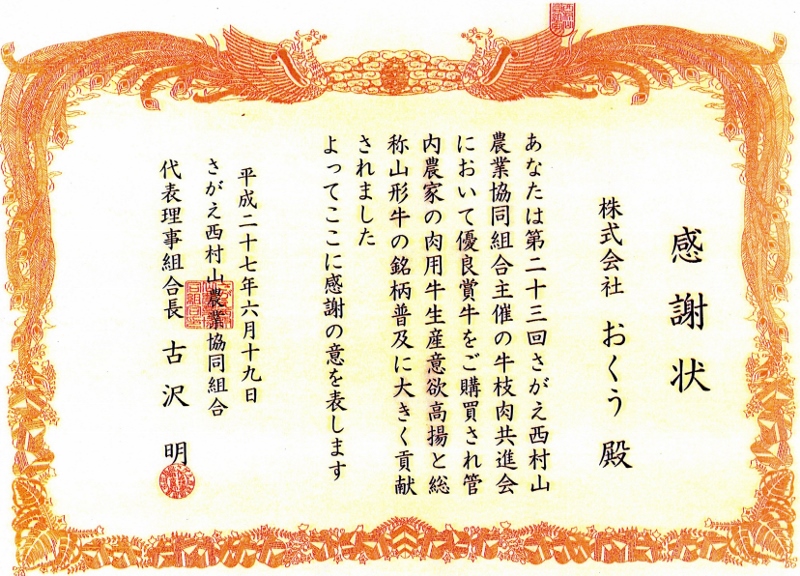 感謝状
株式会社 おくう 殿
あなたは第二十三回さがえ西村山
農業協同組合主催の牛枝肉共進会
において優良賞牛をご購買され管
内農家の肉用牛生産意欲高揚と総
称山形牛の銘柄普及に大きく貢献
されました
よってここに感謝の意を表します
平成二十七年六月十九日
さがえ西村山農業協同組合
代表理事組合長 古沢 明